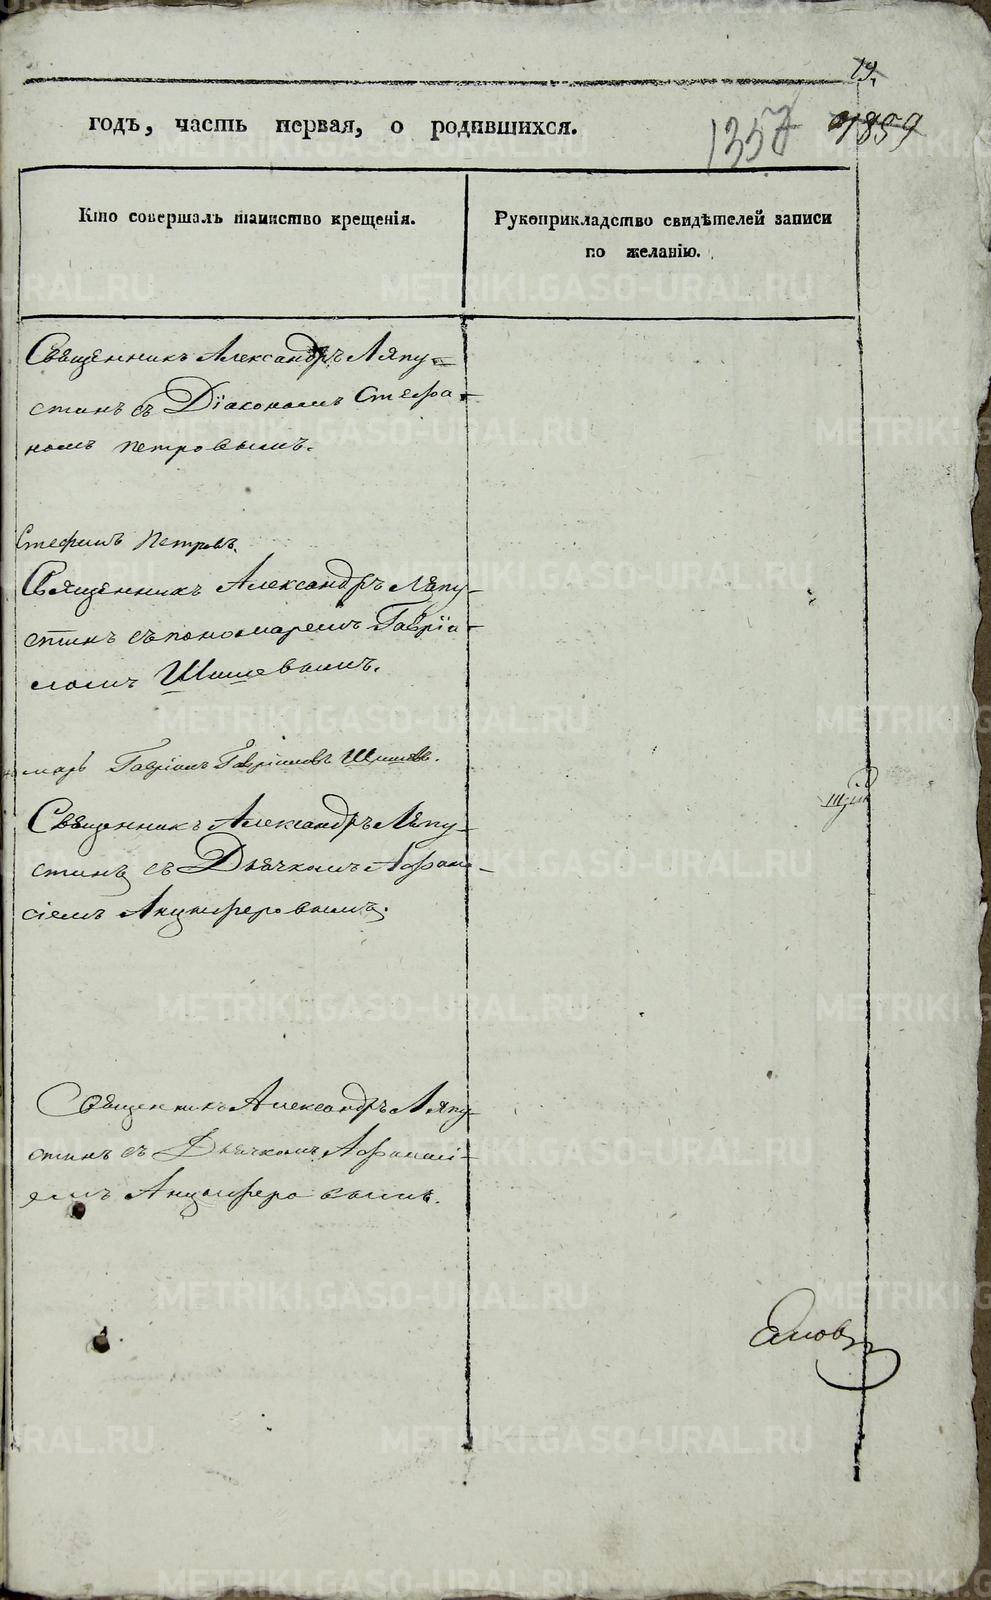 19.
годъ, часть первая, о родившихся.
1357 1859
Кто совершалъ таинство крещенія.
Рукоприкладство свидѣтелей записи
по желанію.
Священникъ Александръ Ляпу-
стинъ съ Діакономъ Стефа-
номъ Петровымъ.
Стефанъ Петровъ.
Священникъ Александръ Ляпу-
стинъ съ пономаремъ Гавріи-
ломъ Шишевымъ.
Гавріилъ Гавріиловъ Шишевъ.
Священникъ Александръ Ляпу-
стинъ съ Дьячкомъ Афана-
сіемъ Анциферовымъ.
Священникъ Александръ Ляпу-
стинъ съ Дьячкомъ Афанасі-
емъ Анциферовымъ.
METRIKI.GASO-URAL.RU